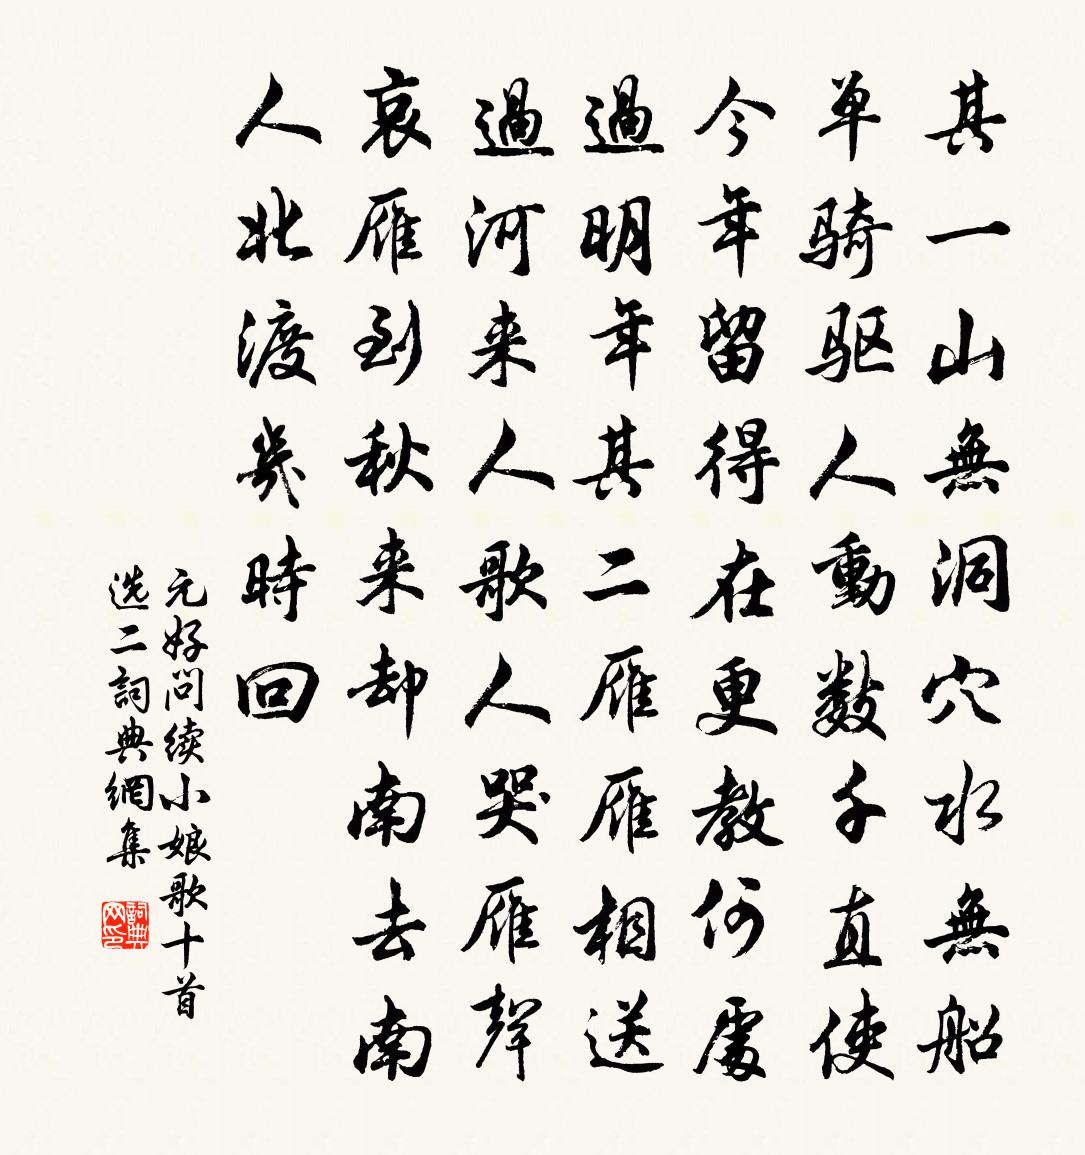 其一山無洞穴水無船
单骑驱人動数千直使
今年留得在更教何處
過明年其二雁雁相送
過河来人歌人哭雁聲
哀雁到秋来却南去南
人北渡幾時回
元好问续小娘歌十首
选二詞典網集
詞典网印